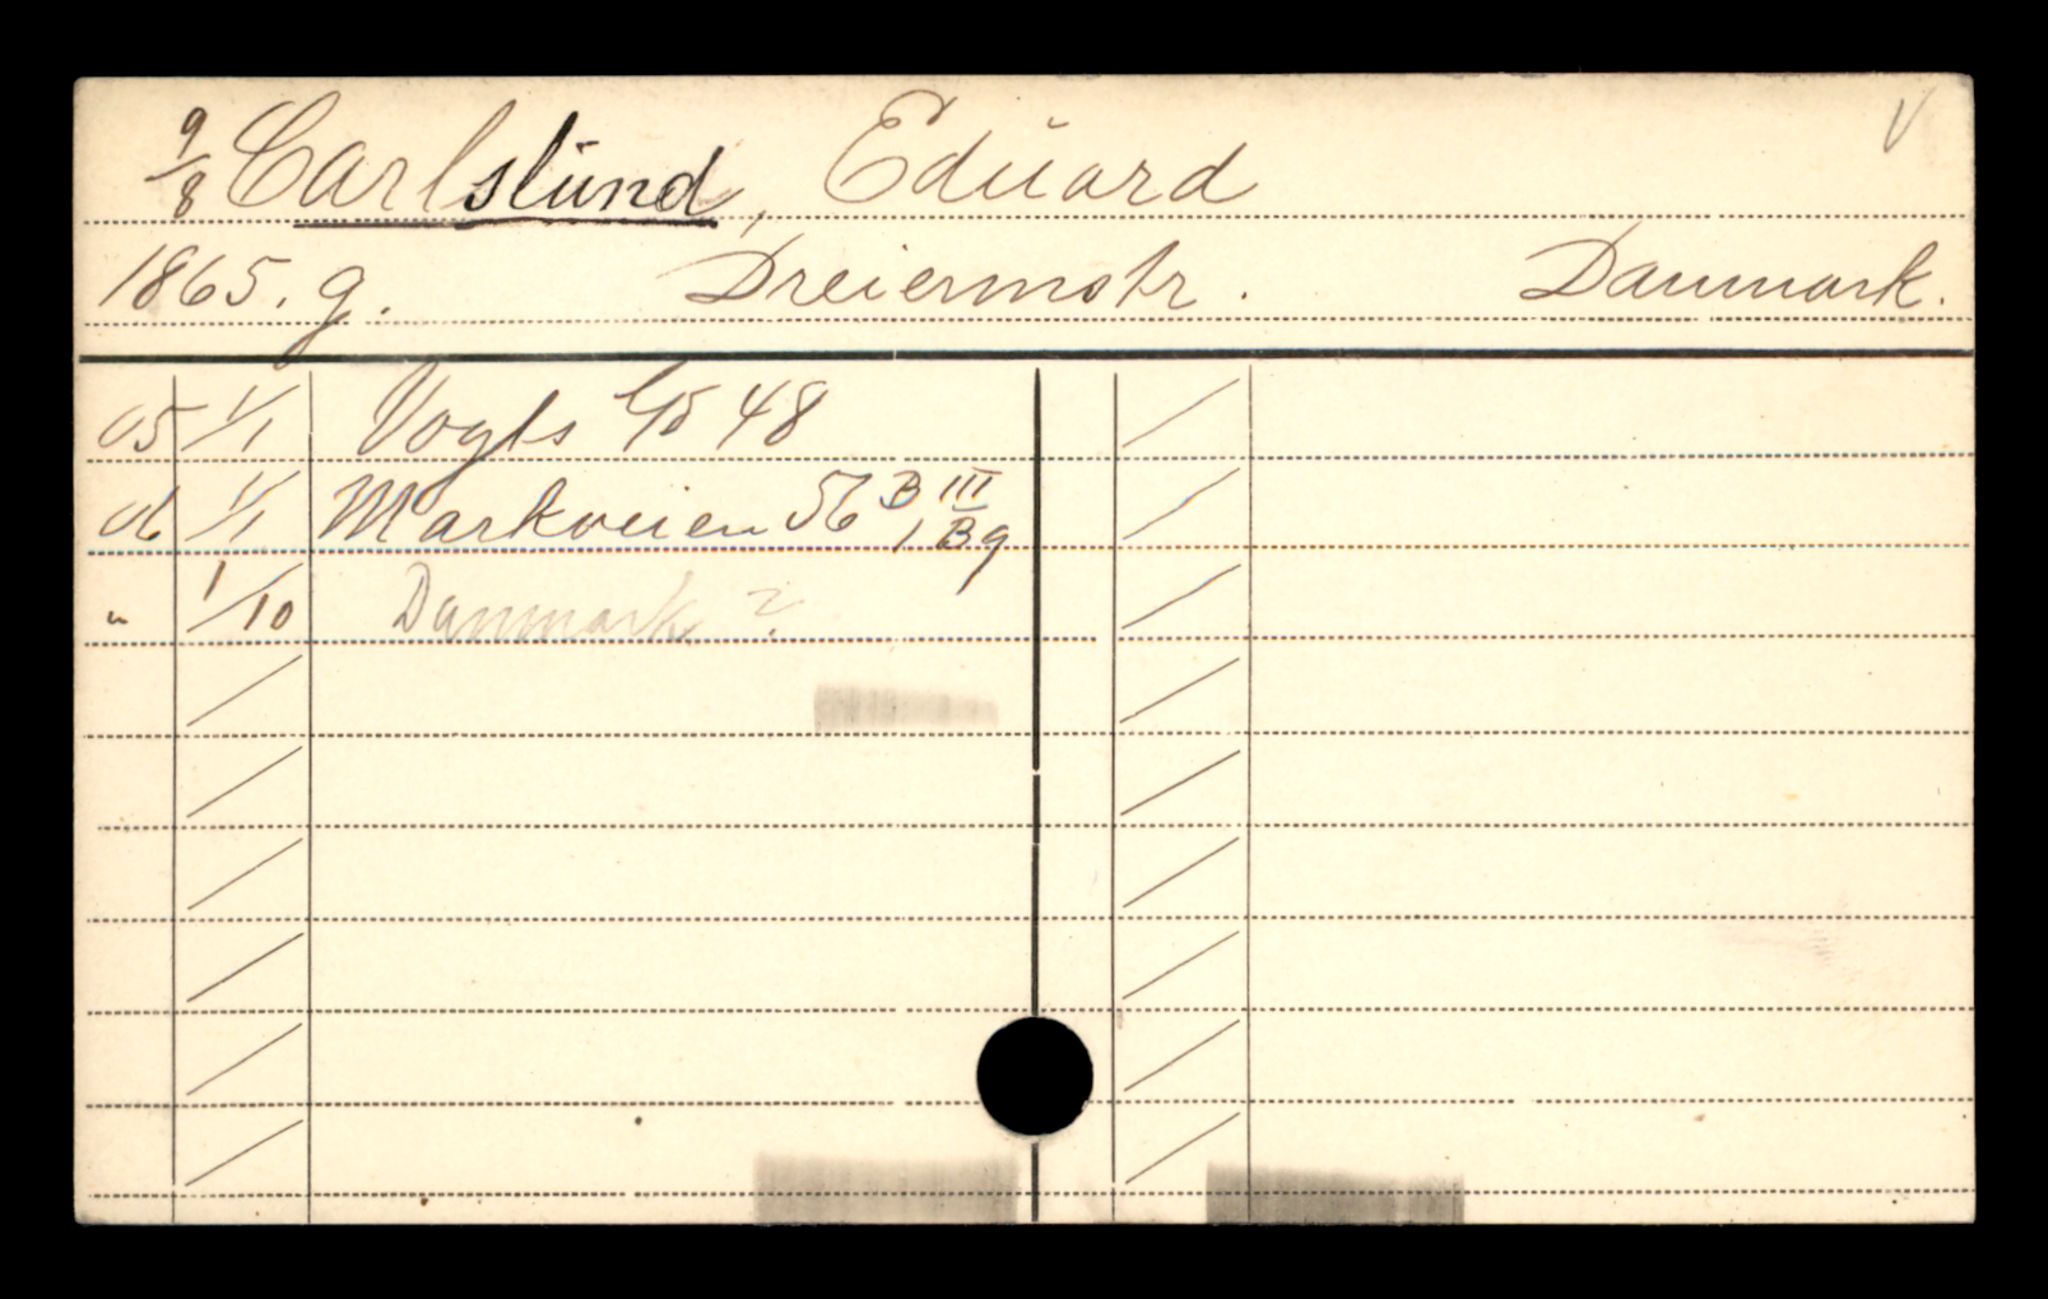 9/8 Carlslund, Eduard V
1865. g. Dreiermstr. Danmark.
05 1/1 Vogts Gd 48
06 1/1 Markveien 56 B III / Bg
" 1/10 Danmark ?